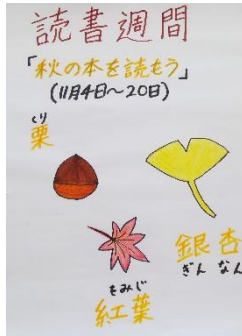 読書週間
「秋の本を読もう」
(11月4日〜20日)
くり
栗
銀杏
ぎんなん
もみじ
紅葉